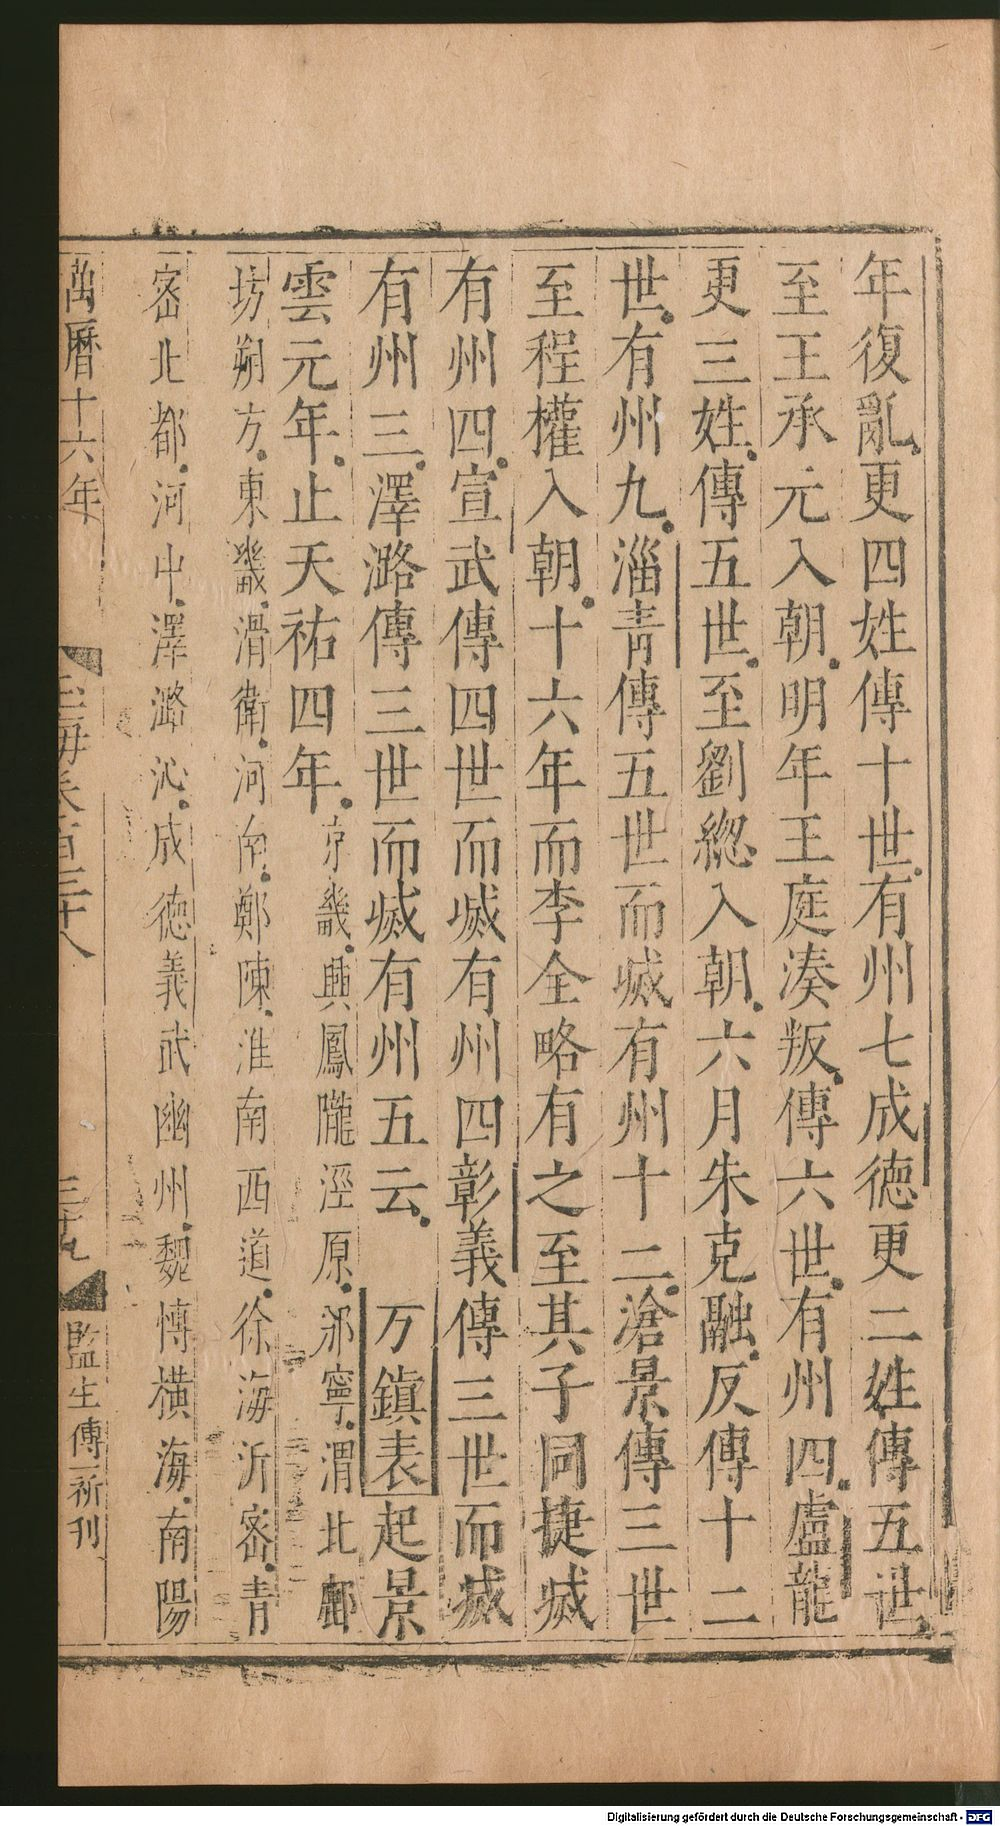 年復亂更四姓傳十世有州七成德更二姓傳五世
至王承元入朝明年王庭湊叛傳六世有州四盧龍
更三姓傳五世至劉緫入朝六月朱克融反傳十二
世有州九淄青傳五世而滅有州十二滄景傳三世
至程權入朝十六年而李全略有之至其子同捷滅
有州四宣武傳四世而滅有州四彰義傳三世而滅
有州三澤潞傳三世而滅有州五云 方鎮表起景
雲元年止天祐四年京畿興鳳隴涇原邠寧渭北鄜
坊朔方東畿滑衛河南鄭陳淮南西道徐海沂密青
密北都河中澤潞沁成德義武幽州魏博橫海南陽
萬曆十六年 玉海卷百三十八 三十九 監生傅一祈刊
Digitalisierung gefördert durch die Deutsche Forschungsgemeinschaft - DFG